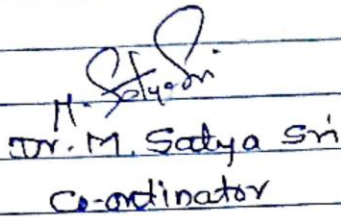 M. Satya Sri
Dr. M. Satya Sri
Co-ordinator